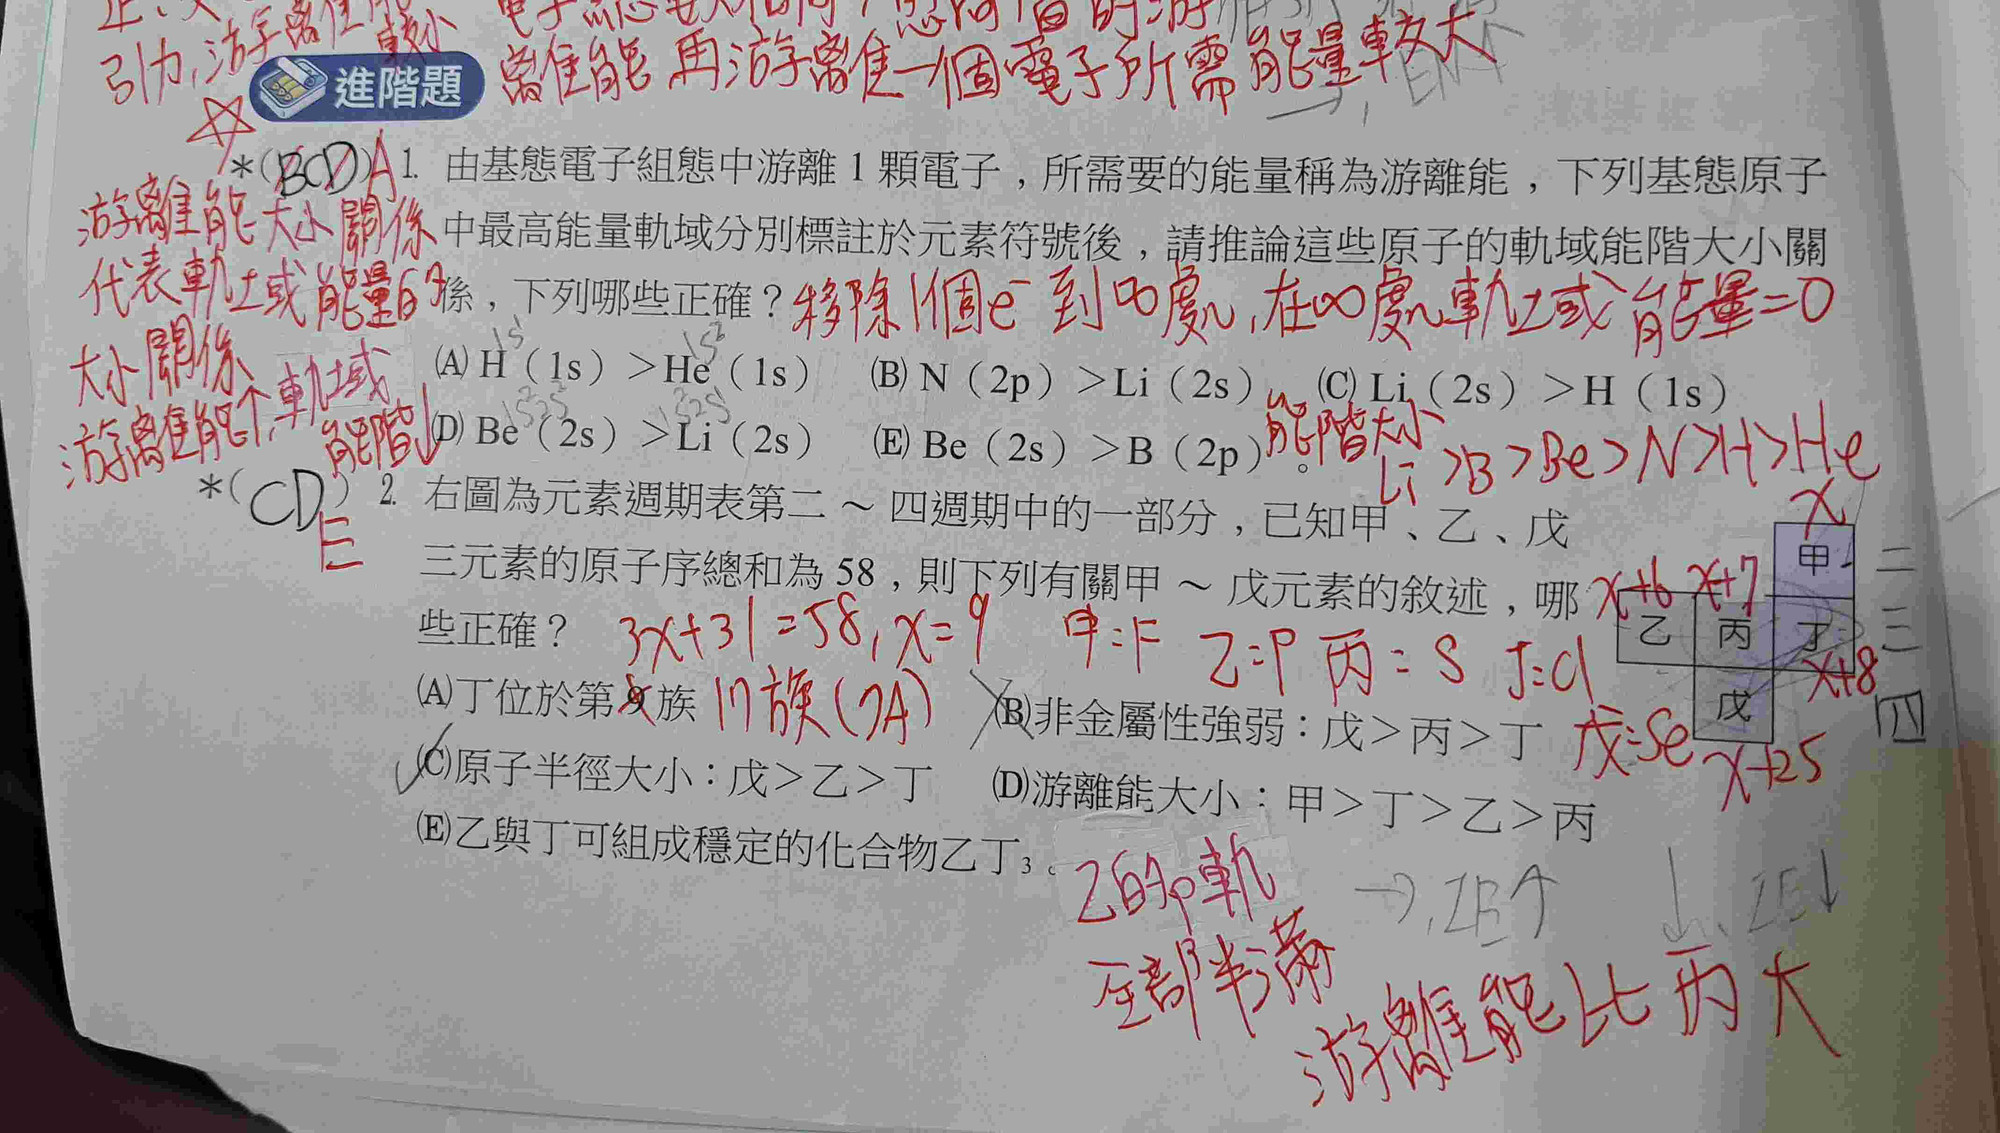 引力,游離能較小
離能 再游離一個電子所需能量較大
進階題
*(BCD)A 1. 由基態電子組態中游離 1 顆電子,所需要的能量稱為游離能,下列基態原子
中最高能量軌域分別標註於元素符號後,請推論這些原子的軌域能階大小關
係,下列哪些正確?
移除1個e⁻到∞處,在∞處軌域能量=0
游離能大小關係
代表軌域能量的
大小關係
游離能↑,軌域
能階↓
1s 1s²
(A) H(1s)>He(1s) (B) N(2p)>Li(2s) (C) Li(2s)>H(1s)
(D) Be(2s)>Li(2s) (E) Be(2s)>B(2p)。
能階大小
Li>B>Be>N>H>He
*(CDE) 2. 右圖為元素週期表第二~四週期中的一部分,已知甲、乙、戊
三元素的原子序總和為 58,則下列有關甲~戊元素的敘述,哪
些正確?
3x+31=58,x=9 甲=F 乙=P 丙=S 丁=Cl
戊=Se
x
甲 二
x+6 x+7
乙 丙 丁 三
x+8
戊 四
x+25
(A)丁位於第 9 族 17族(7A) (B)非金屬性強弱:戊>丙>丁
(C)原子半徑大小:戊>乙>丁 (D)游離能大小:甲>丁>乙>丙
(E)乙與丁可組成穩定的化合物乙丁₃。
乙的p軌
全部半滿
游離能比丙大
→,IE↑ ↓,IE↓